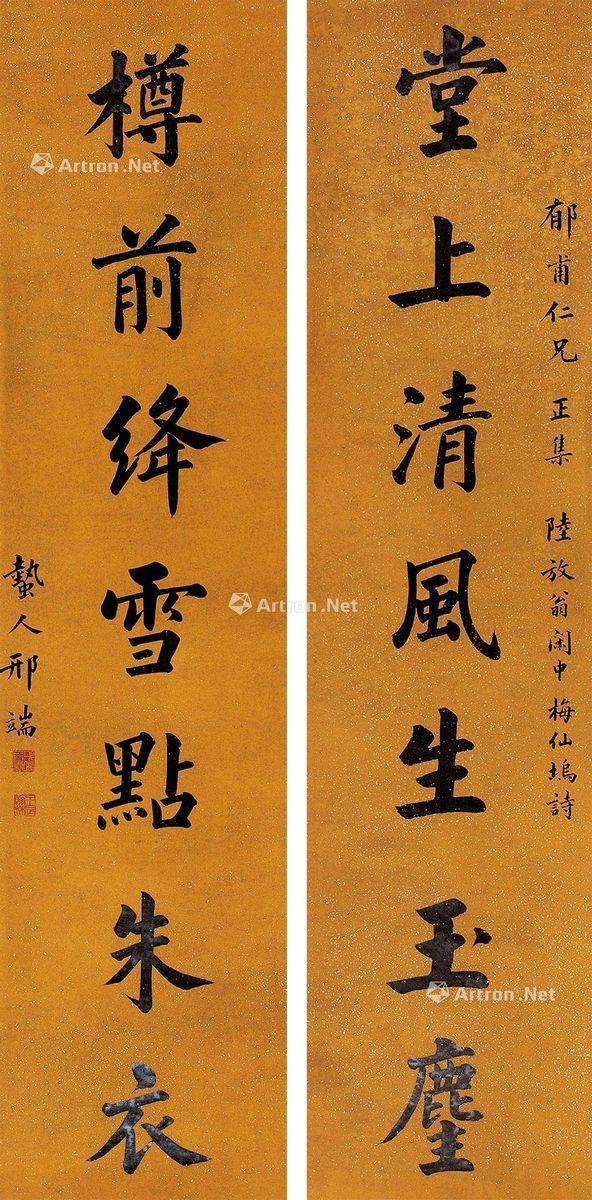 郁甫仁兄 正集 陸放翁閑中梅仙塢詩
堂上清風生玉麈
樽前絳雪點朱衣
蟄人邢端
Artron.Net
Artron.Net
Artron.Net